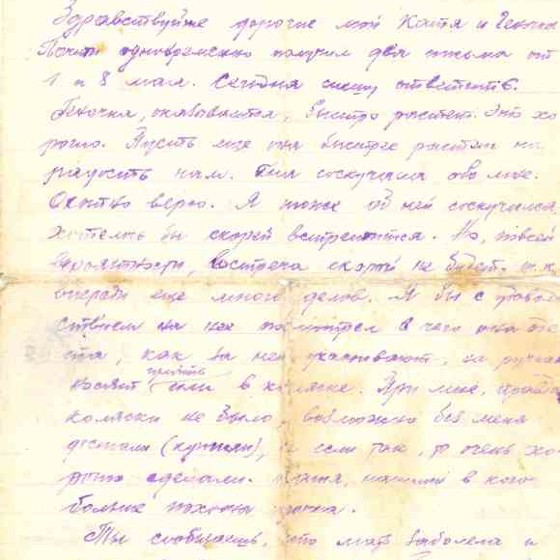 Здравствуйте дорогие мои Катя и Геночка
Почти одновременно получил два письма от
1 и 8 мая. Сегодня спешу ответить.
Геночка, оказывается, быстро растет. Это хо
рошо. Пусть еще она быстрее растет на
радость нам. Она соскучилась обо мне.
Охотно верю. Я тоже об ней соскучился
Хотелось бы скорей встретиться. Но, по всей
вероятности, встреча скорой не будет, т.к.
впереди еще много делов. Я бы с удово
ствием на нее посмотрел в чем она
как за ней ухаживают, на руках
носят или в коляске. При мне,
коляски не было, возможно без меня
достали (купили), и если так, то очень хо
рошо сделали. Катя, напиши в кого
больше похожа
Ты сообщаешь, что мать заболела и